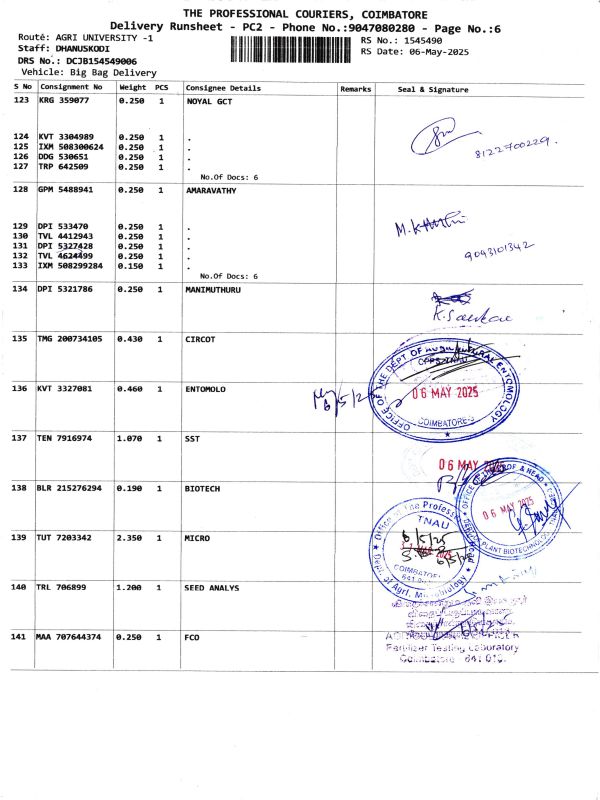 THE PROFESSIONAL COURIERS, COIMBATORE
Delivery Runsheet - PC2 - Phone No.:9047080280 - Page No.:6
Route: AGRI UNIVERSITY -1
RS No.: 1545490
Staff: DHANUSKODI
RS Date: 06-May-2025
DRS No.: DCJB154549006
Vehicle: Big Bag Delivery
S No Consignment No Weight PCS Consignee Details Remarks Seal & Signature
123 KRG 359077 0.250 1 NOYAL GCT
124 KVT 3304989 0.250 1 .
125 IXM 508300624 0.250 1 .
126 DDG 530651 0.250 1 .
127 TRP 642509 0.250 1 .
8122700229.
No.Of Docs: 6
128 GPM 5488941 0.250 1 AMARAVATHY
129 DPI 533470 0.250 1 .
130 TVL 4412943 0.250 1 .
131 DPI 5327428 0.250 1 .
132 TVL 4624499 0.250 1 .
133 IXM 508299284 0.150 1 .
9093101342
No.Of Docs: 6
134 DPI 5321786 0.250 1 MANIMUTHURU
135 TMG 200734105 0.430 1 CIRCOT
136 KVT 3327081 0.460 1 ENTOMOLO
6/5/25
OFFICE OF THE DEPT OF AGRICULTURAL ENTOMOLOGY
06 MAY 2025
COIMBATORE-3
137 TEN 7916974 1.070 1 SST
06 MAY
138 BLR 215276294 0.190 1 BIOTECH
PROF & HEAD
06 MAY 2025
PLANT BIOTECHNOLOGY
139 TUT 7203342 2.350 1 MICRO
Office of the Professor
TNAU
6/5/25
COIMBATORE
Dept. of Agrl. Microbiology
140 TRL 706899 1.200 1 SEED ANALYS
141 MAA 707644374 0.250 1 FCO
Fertilizer Testing Laboratory
Coimbatore - 641 013.